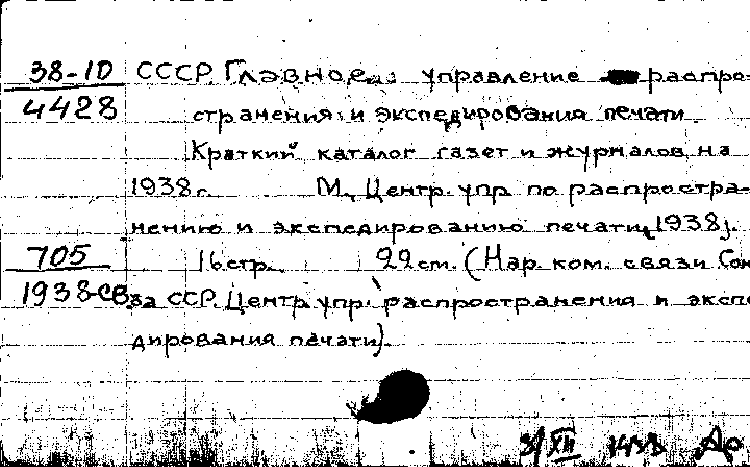 38-10
4428
СССР. Главное управление распро-
странения и экспедирования печати
Краткий каталог газет и журналов на
1938 г. М, Центр. упр. по распростра-
нению и экспедированию печати, (1938).
705
1938-св
16 стр. 22 см. (Нар. ком. связи Сою
за ССР. Центр. упр. распространения и экспе
дирования печати).
3/XII